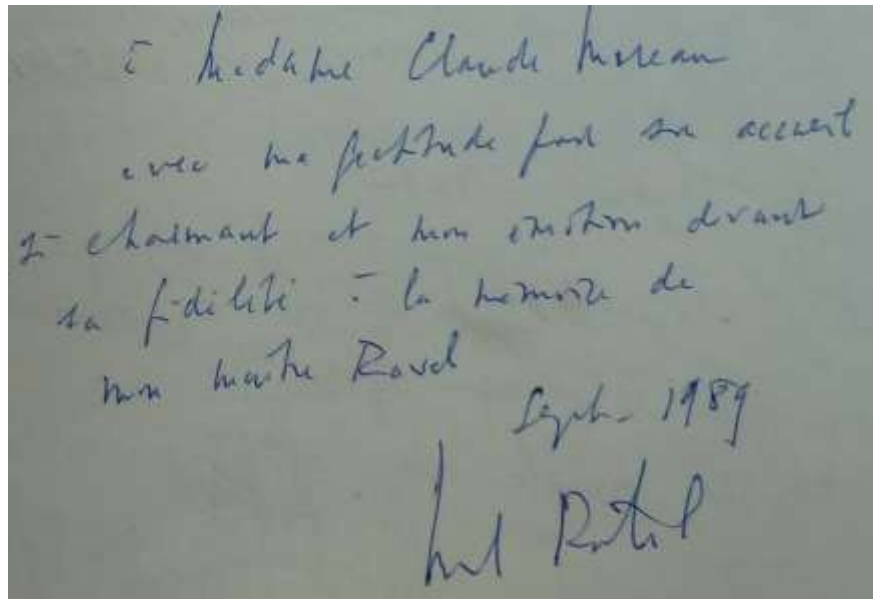 à Madame Claude Moreau
avec ma gratitude pour son accueil
si charmant et mon émotion devant
sa fidélité à la mémoire de
mon maître Ravel
Sept. 1989
Manuel Rosenthal